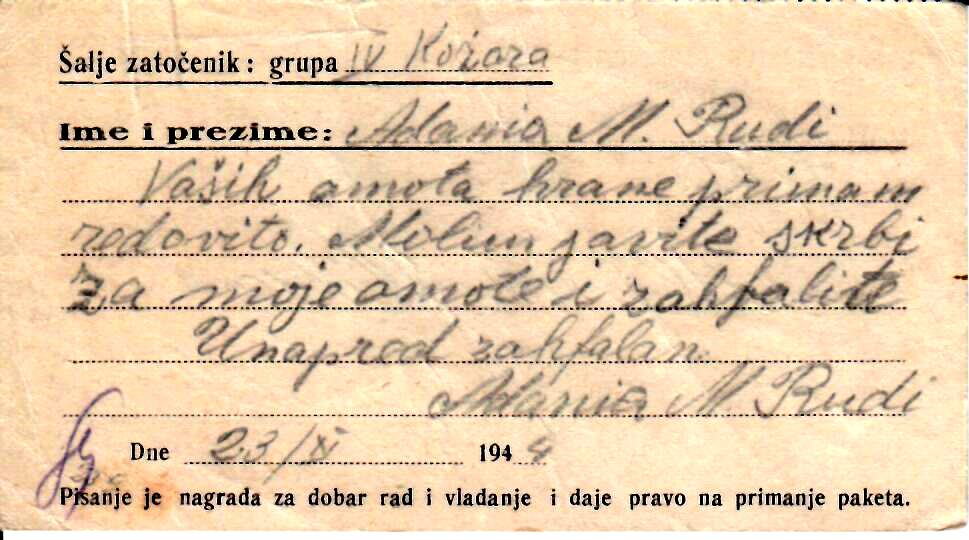 Šalje zatočenik: grupa IV Kožara
Ime i prezime: Adania M. Rudi
Vaših amota hrane primam
redovito. Molim javite skrbi
za moje amote i zahfalite
Unapred zahfalan
Adania M. Rudi
Dne 23/XI 1944
Pisanje je nagrada za dobar rad i vladanje i daje pravo na primanje paketa.